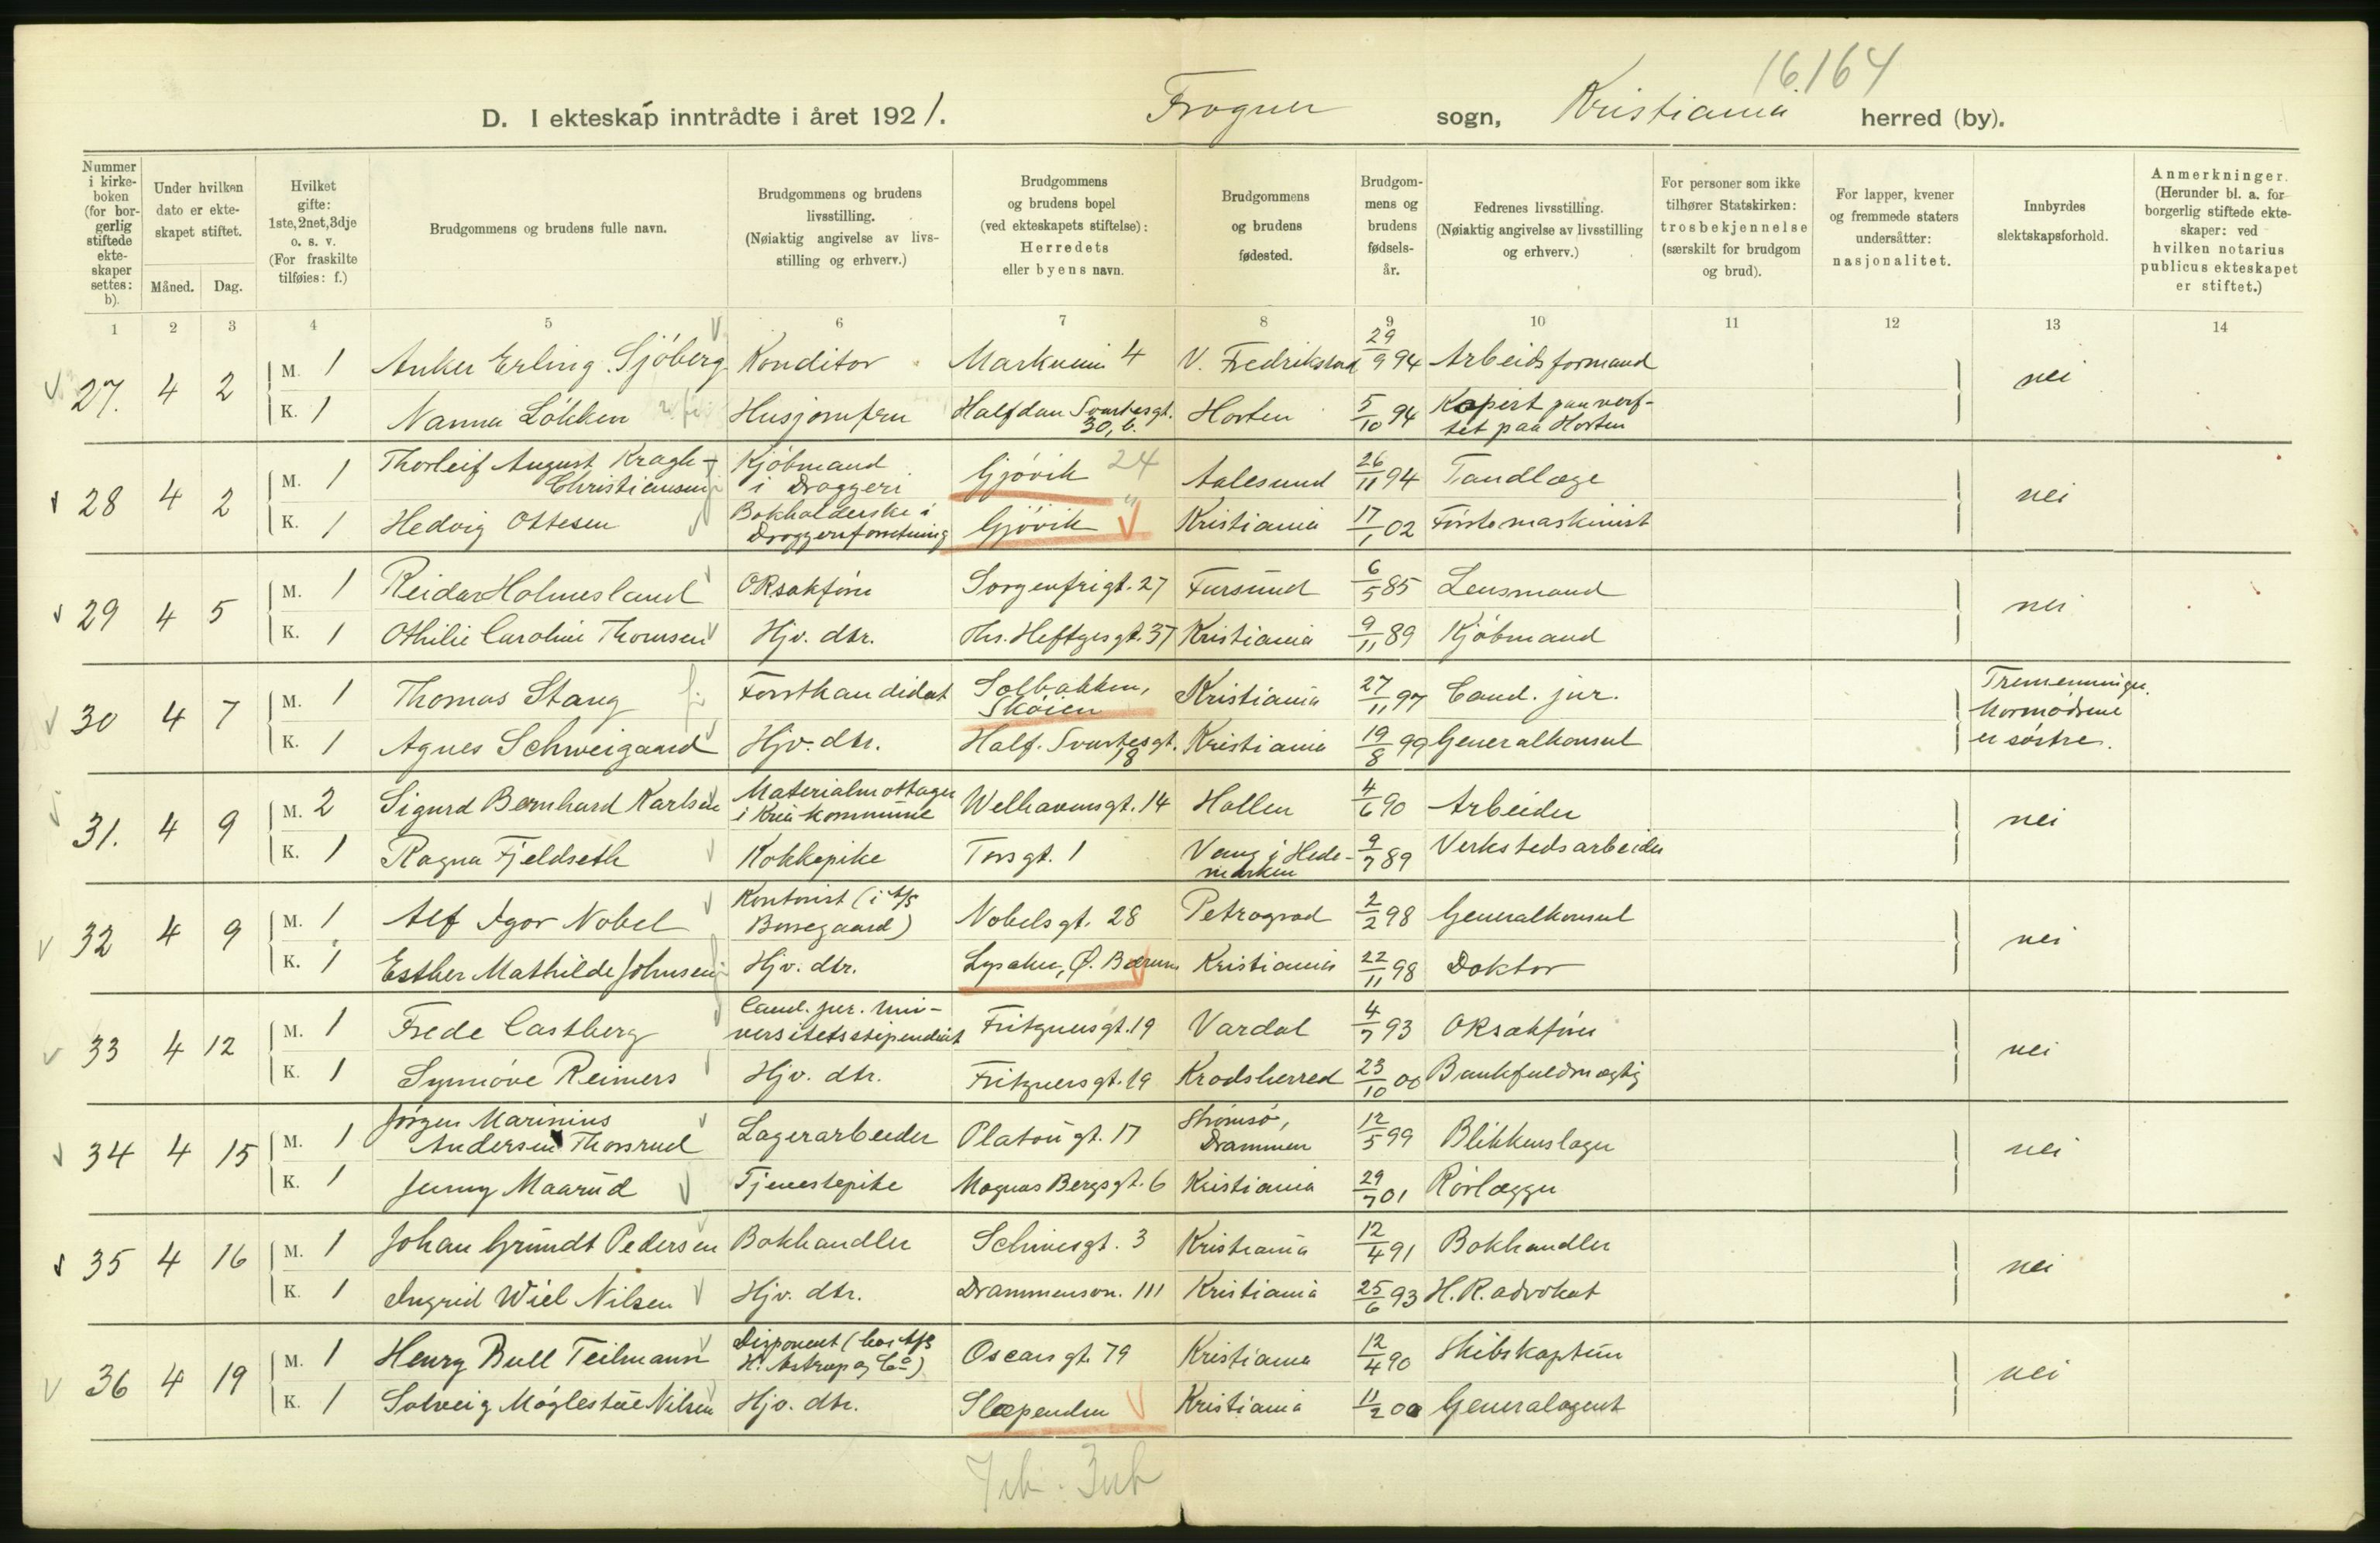 16.164
D. I ekteskap inntrådte i året 1921. Frogner sogn, Kristiania herred (by).
Nummer i kirkeboken (for borgerlig stiftede ekteskaper settes: b).
Under hvilken dato er ekteskapet stiftet.
Måned. Dag.
Hvilket gifte: 1ste, 2net, 3dje o. s. v. (For fraskilte tilføies: f.)
Brudgommens og brudens fulle navn.
Brudgommens og brudens livsstilling. (Nøiaktig angivelse av livsstilling og erhverv.)
Brudgommens og brudens bopel (ved ekteskapets stiftelse): Herredets eller byens navn.
Brudgommens og brudens fødested.
Brudgommens og brudens fødselsår.
Fedrenes livsstilling. (Nøiaktig angivelse av livsstilling og erhverv.)
For personer som ikke tilhører Statskirken: trosbekjennelse (særskilt for brudgom og brud).
For lapper, kvener og fremmede staters undersåtter: nasjonalitet.
Innbyrdes slektskapsforhold.
Anmerkninger. (Herunder bl. a. for borgerlig stiftede ekteskaper: ved hvilken notarius publicus ekteskapet er stiftet.)
1 2 3 4 5 6 7 8 9 10 11 12 13 14
27. 4 2 M. 1 Anker Erling Sjöberg Konditor Markveien 4 V. Fredrikstad 29/9 94 Arbeidsformand nei
K. 1 Nanna Lökken Husjomfru Halfdan Svartesgt. 30, b. Horten 5/10 94 Kopist paa verftet paa Horten
28 4 2 M. 1 Thorleif August Kragh-Christiansen Kjöbmand i Droggeri Gjövik 24 Aalesund 26/11 94 Tandlæge nei
K. 1 Hedvig Ottesen Bokholderske i Droggeriforretning Gjövik " Kristiania 17/1 02 Förstemaskinist
29 4 5 M. 1 Reidar Holmesland ORsakförer Sorgenfrigt. 27 Farsund 6/5 85 Lensmand nei
K. 1 Othilie Caroline Thomsen Hjv. dtr. Ths. Heftyesgt. 37 Kristiania 9/11 89 Kjöbmand
30 4 7 M. 1 Thomas Stang Forstkandidat Solbakken, Skøien Kristiania 27/11 97 Cand. jur. Tremenninger. Mormødrene er søstre.
K. 1 Agnes Schweigaard Hjv. dtr. Half. Svartesgt. 18 Kristiania 19/8 99 Generalkonsul
31. 4 9 M. 2 Sigurd Bernhard Karlsen Materialmottager i Kria kommune Welhavensgt. 14 Hollen 4/6 90 Arbeider nei
K. 1 Ragna Fjeldseth Kokkepike Torsgt. 1 Vang i Hedemarken 9/7 89 Verkstedsarbeider
32 4 9 M. 1 Alf Igor Nobel Kontorist (i A/S Borregaard) Nobelsgt. 28 Petrograd 2/2 98 Generalkonsul nei
K. 1 Esther Mathilde Johnsen Hjv. dtr. Lysaker, Ö. Bærum Kristiania 22/11 98 Doktor
33 4 12 M. 1 Frede Castberg Cand. jur. universitetsstipendiat Fritznersgt. 19 Vardal 4/7 93 ORsakförer nei
K. 1 Synnöve Reimers Hjv. dtr. Fritznersgt. 19 Krodsherred 23/10 00 Bankfuldmægtig
34 4 15 M. 1 Jörgen Marinius Andersen Thorsrud Lagerarbeider Platougt. 17 Strömsö, Drammen 12/5 99 Blikkenslager nei
K. 1 Jenny Maarud Tjenestepike Magnus Bergsgt. 6 Kristiania 29/7 01 Rörlægger
35 4 16 M. 1 Johan Grundt Pedersen Bokhandler Schivesgt. 3 Kristiania 12/4 91 Bokhandler nei
K. 1 Ingrid Wiel Nilsen Hjv. dtr. Drammensvn. 111 Kristiania 25/6 93 H.R. advokat
36 4 19 M. 1 Henry Bull Teilmann Disponent (hos A/S H. Astrup og Co) Oscarsgt. 79 Kristiania 12/4 90 Skibskaptein nei
K. 1 Solveig Möglestue Nilsen Hjv. dtr. Slæpenden Kristiania 11/2 00 Generalagent